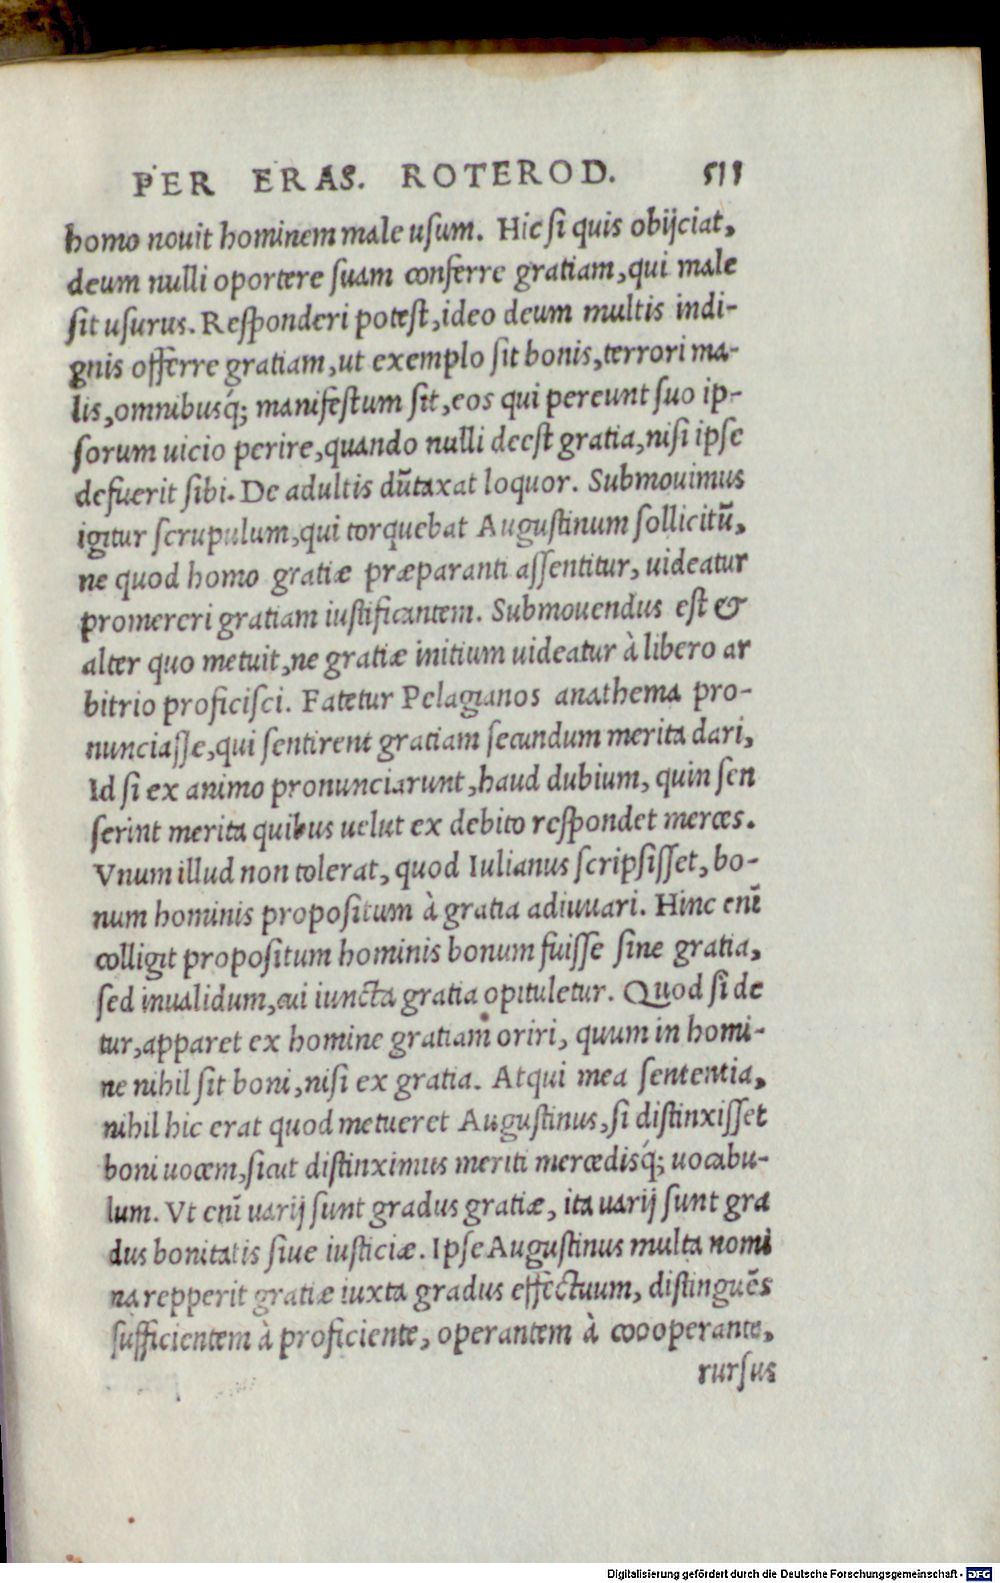 PER ERAS. ROTEROD. 511
homo nouit hominem male usum. Hic si quis obijciat,
deum nulli oportere suam conferre gratiam, qui male
sit usurus. Responderi potest, ideo deum multis indi-
gnis offerre gratiam, ut exemplo sit bonis, terrori ma-
lis, omnibusq́; manifestum sit, eos qui pereunt suo ip-
sorum uicio perire, quando nulli deest gratia, nisi ipse
defuerit sibi. De adultis dũtaxat loquor. Submouimus
igitur scrupulum, qui torquebat Augustinum sollicitũ,
ne quod homo gratiæ præparanti assentitur, uideatur
promereri gratiam iustificantem. Submouendus est &
alter quo metuit, ne gratiæ initium uideatur à libero ar
bitrio proficisci. Fatetur Pelagianos anathema pro-
nunciasse, qui sentirent gratiam secundum merita dari,
Id si ex animo pronunciarunt, haud dubium, quin sen
serint merita quibus uelut ex debito respondet merces.
Vnum illud non tolerat, quod Iulianus scripsisset, bo-
num hominis propositum à gratia adiuuari. Hinc enĩ
colligit propositum hominis bonum fuisse sine gratia,
sed inualidum, cui iuncta gratia opituletur. Quod si de
tur, apparet ex homine gratiam oriri, quum in homi-
ne nihil sit boni, nisi ex gratia. Atqui mea sententia,
nihil hic erat quod metueret Augustinus, si distinxisset
boni uocem, sicut distinximus meriti mercedisq́; uocabu-
lum. Vt enĩ uarij sunt gradus gratiæ, ita uarij sunt gra
dus bonitatis siue iusticiæ. Ipse Augustinus multa nomi
na repperit gratiæ iuxta gradus effectuum, distinguẽs
sufficientem à proficiente, operantem à cooperante,
rursus
Digitalisierung gefördert durch die Deutsche Forschungsgemeinschaft - DFG